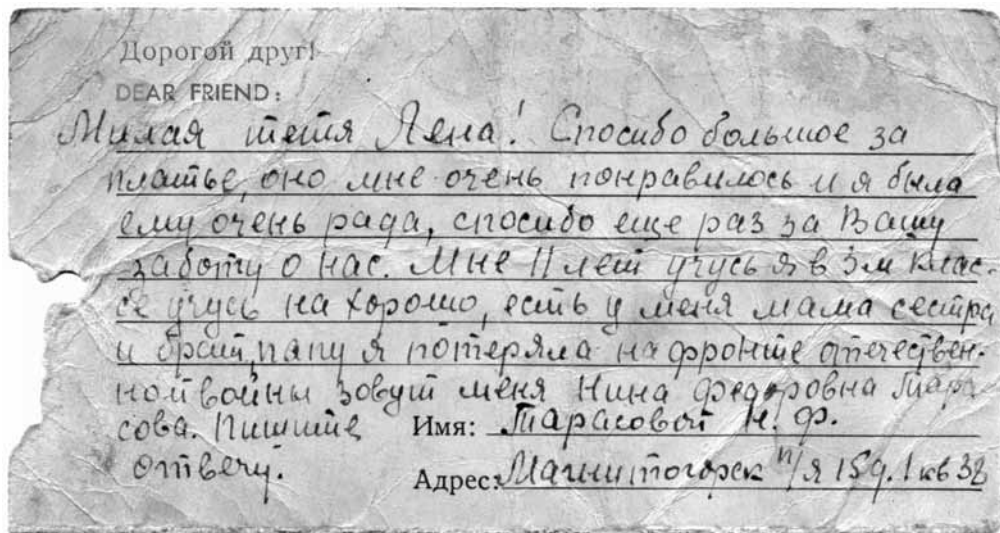 Дорогой друг!
DEAR FRIEND:
Милая тетя Лена! Спосибо большое за
платье, оно мне очень понравилось и я была
ему очень рада, спосибо еще раз за Вашу
заботу о нас. Мне 11 лет учусь я в 3м клас-
се учусь на хорошо, есть у меня мама сестра
и брат, папу я потеряла на фронте отечествен-
ной войны зовут меня Нина Федоровна Тара
сова. Пишите
Имя: Тарасовой Н. Ф.
отвечу.
Адрес: Магнитогорск п/я 15 д. 1 кв 32